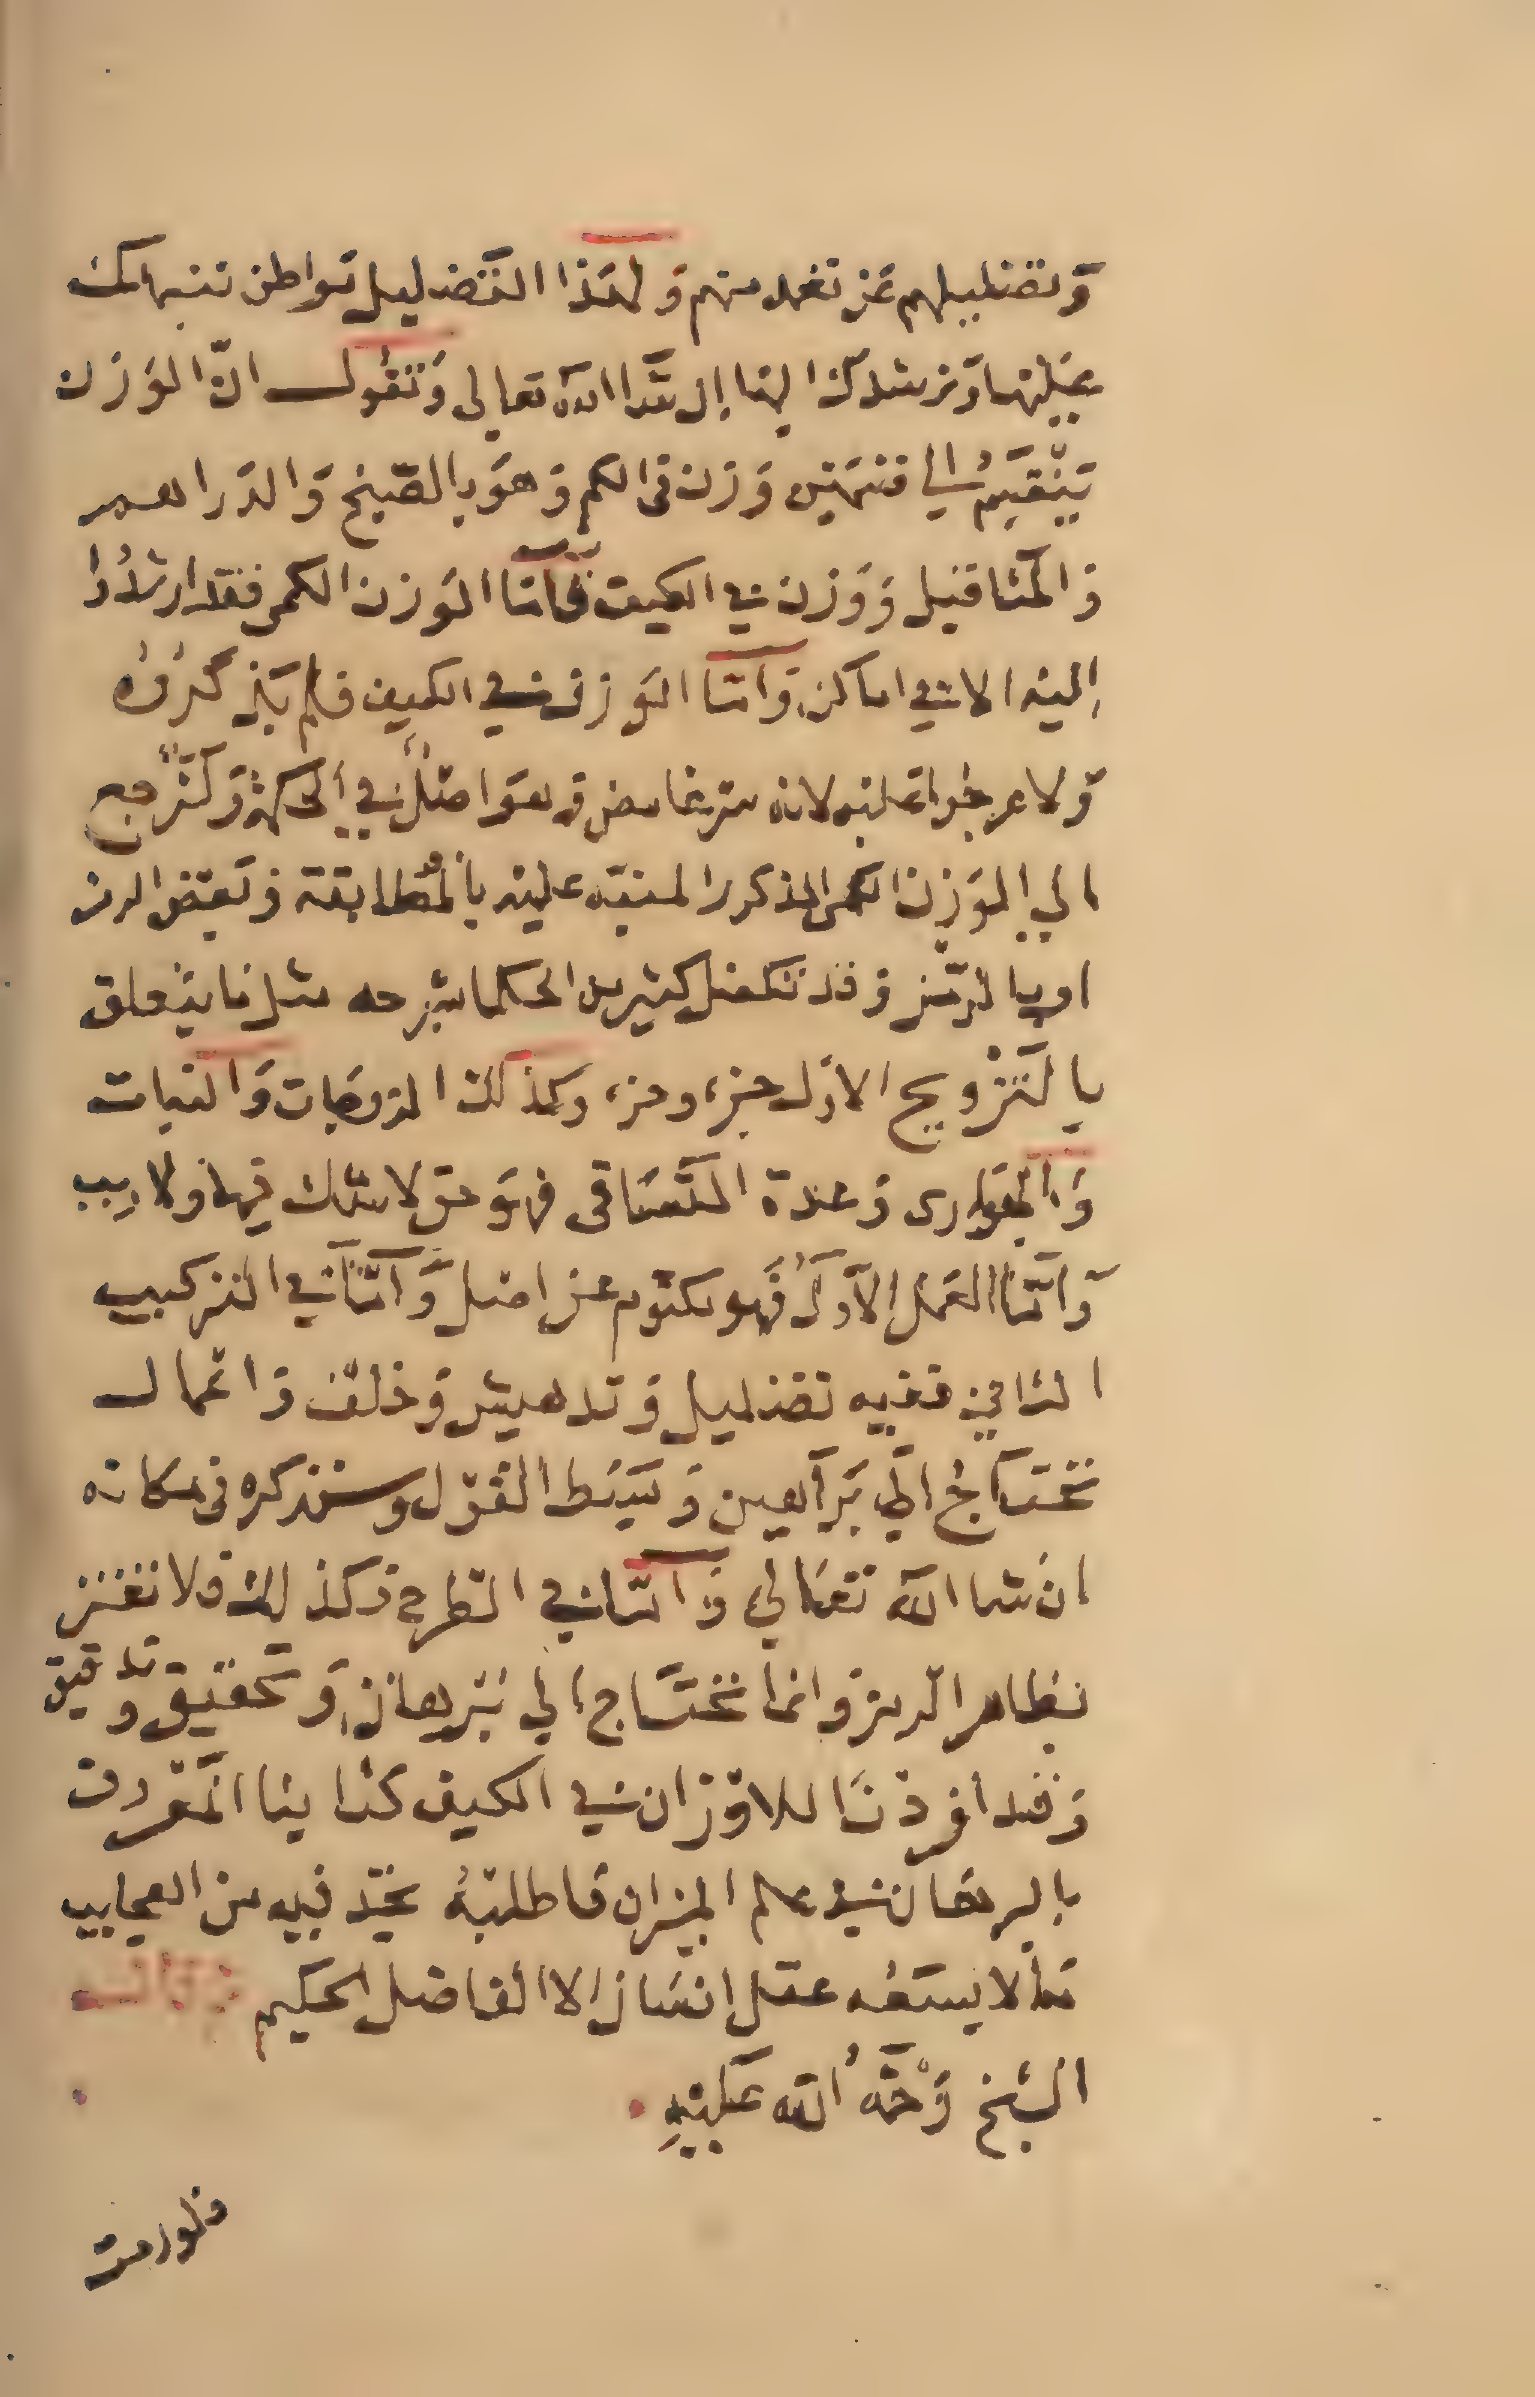 وتضليلهم عن تقدمهم ولهذا التضليل مواطن ننبهك
عليها ونرشدك اليها ان شا الله تعالى ونقول ان الوزن
ينقسم الي قسمين وزن في الكم وهو بالصنج والدراهم
والمثاقيل ووزن في الكيف فاما الوزن الكمي فقد ارشدوا
اليه الا في اماكن واما الوزن في الكيف فلم يذكروه
ولا عرجوا عليه لانه سر غامض وهو اصل في الحكمة ولنرجع
الي الوزن الكمي المذكور المنبه عليه بالمطابقة وبعض الرمز
او بالرمز وقد تكفل كثير من الحكما بشرحه مثل ما يتعلق
بالتزويج الاول جزء وجزء وكذلك المزوجات والنبات
والجواري وعدة التساقي فهو حق لا شك فيها ولا ريب
واما العمل الاول فهو مكتوم عن اصل واما في التركيب
الثاني ففيه تضليل وتدهيش وخلف واعمال
تحتاج الي براهين وبسط القول وسنذكره في مكانه
ان شا الله تعالي واما في الطرح فكذلك فلا تغتر
بظاهر الرمز وانما تحتاج الي برهان وتحقيق وتدقيق
وقد افردنا للاوزان في الكيف كتابنا المعروف
بالبرهان في علم الميزان فاطلبه تجد فيه من العجايب
ما لا يسعه عقل انسان الا الفاضل الحكيم قال
الشيخ رحمة الله عليه